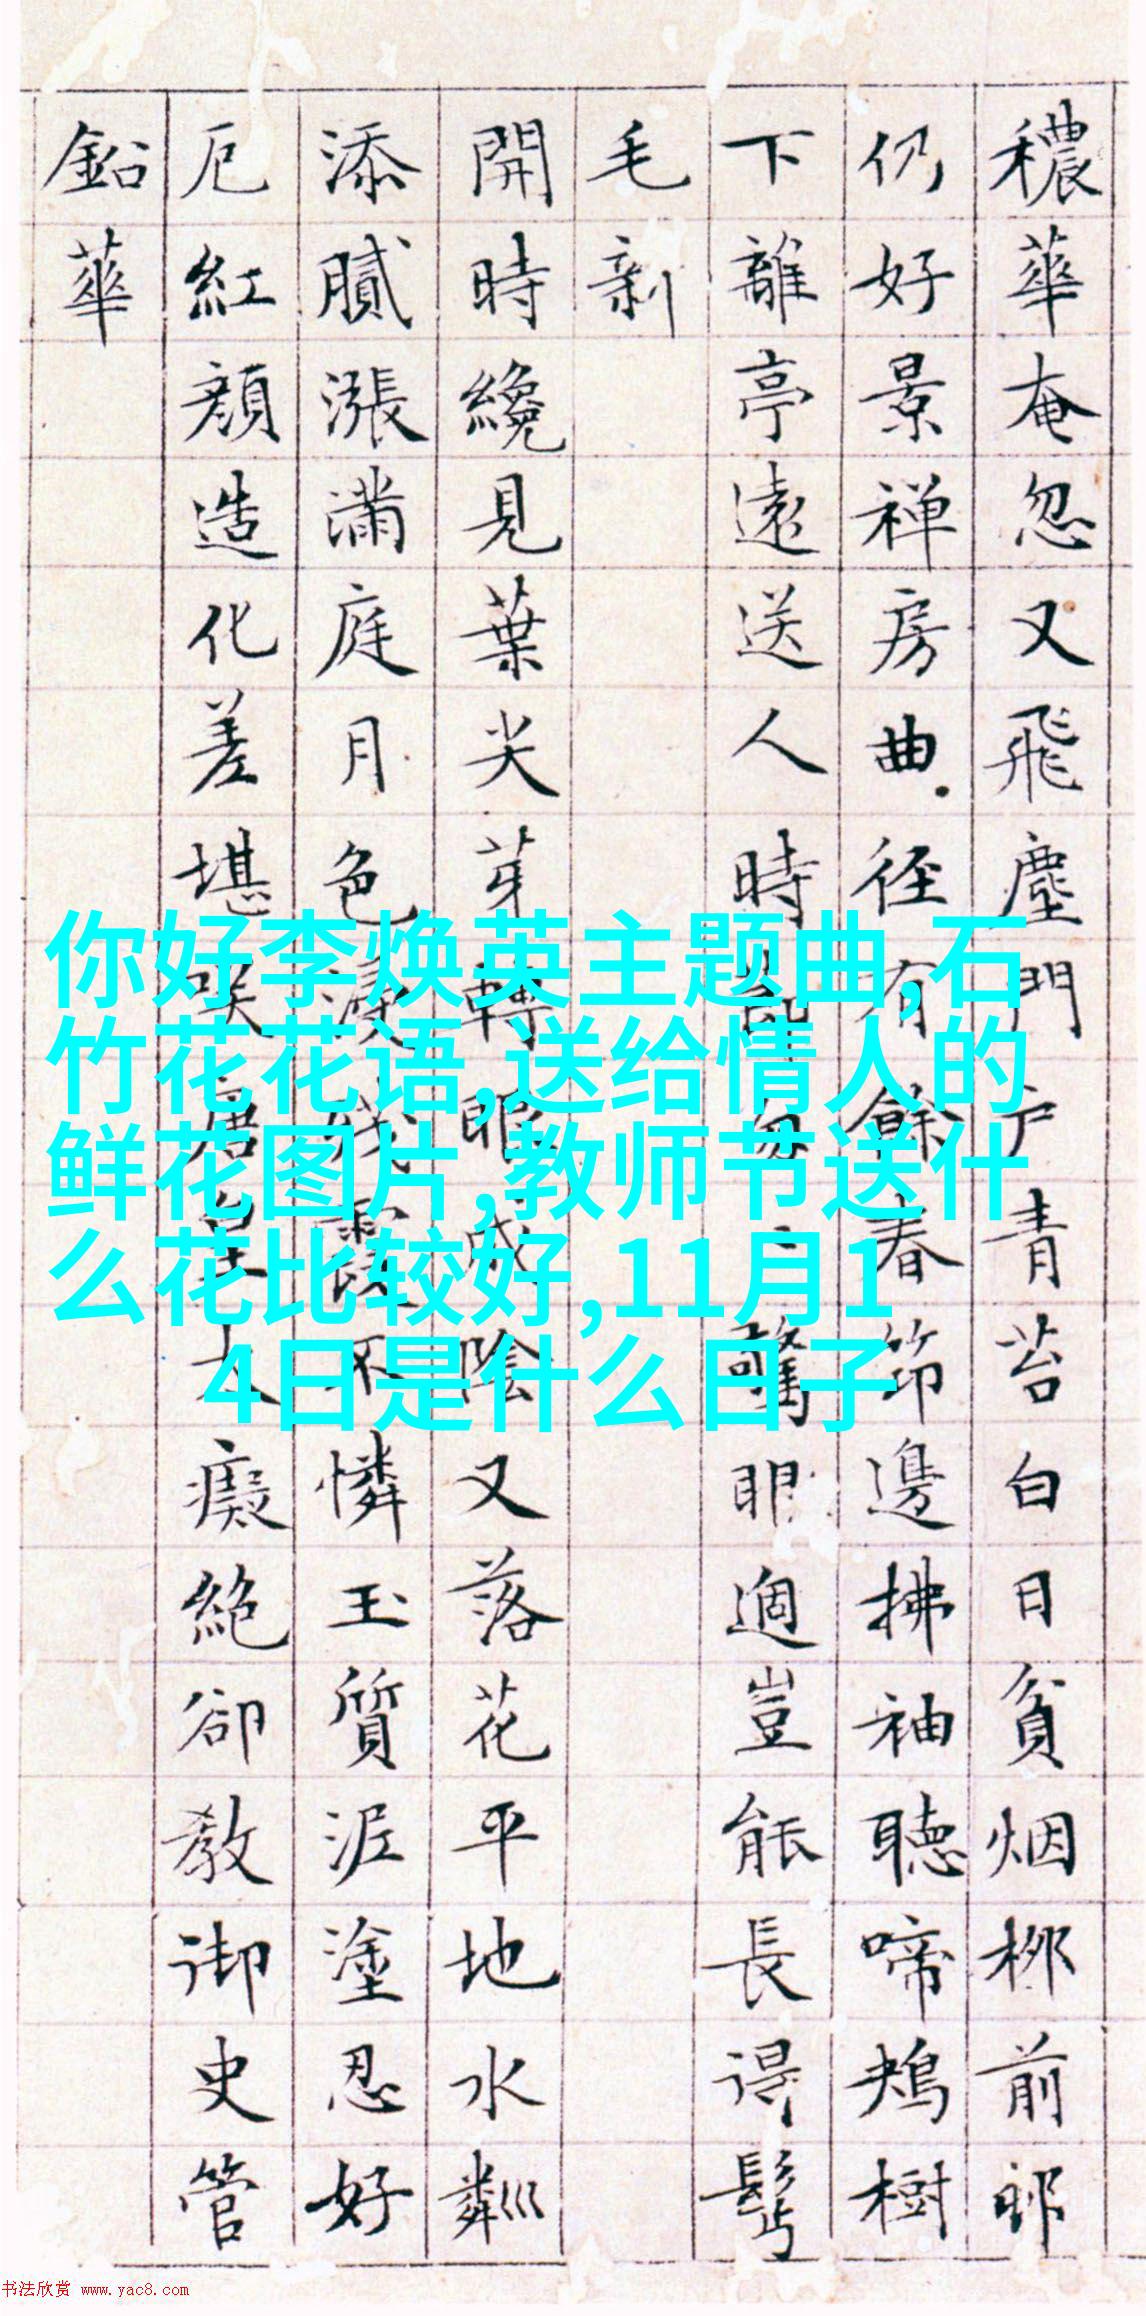 穠華奄忽又飛塵門戶青苔白日貧烟栁前邨
仍好景禅房曲徑有餘春筇邊拂袖聽啼鴂樹
下離亭遠送人時節匆匆驚眼過豈能長得鬢
毛新
開時纔見葉尖芽轉眼成陰又落花平地水粼
添膩漲滿庭月色殘霞不憐玉質泥塗忍好
厄紅顏造化差堪唐皇太癡絕卻教御史管
鉛華
你好李焕英主题曲,石
竹花花语,送给情人的
鲜花图片,教师节送什
么花比较好,11月1
4日是什么日子
书法欣赏 www.yac8.com